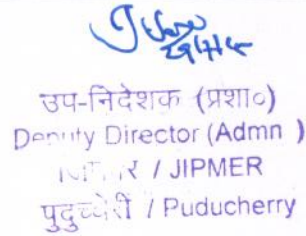 उप-निदेशक (प्रशा०)
Deputy Director (Admn )
/ JIPMER
पुदुच्चेरी / Puducherry